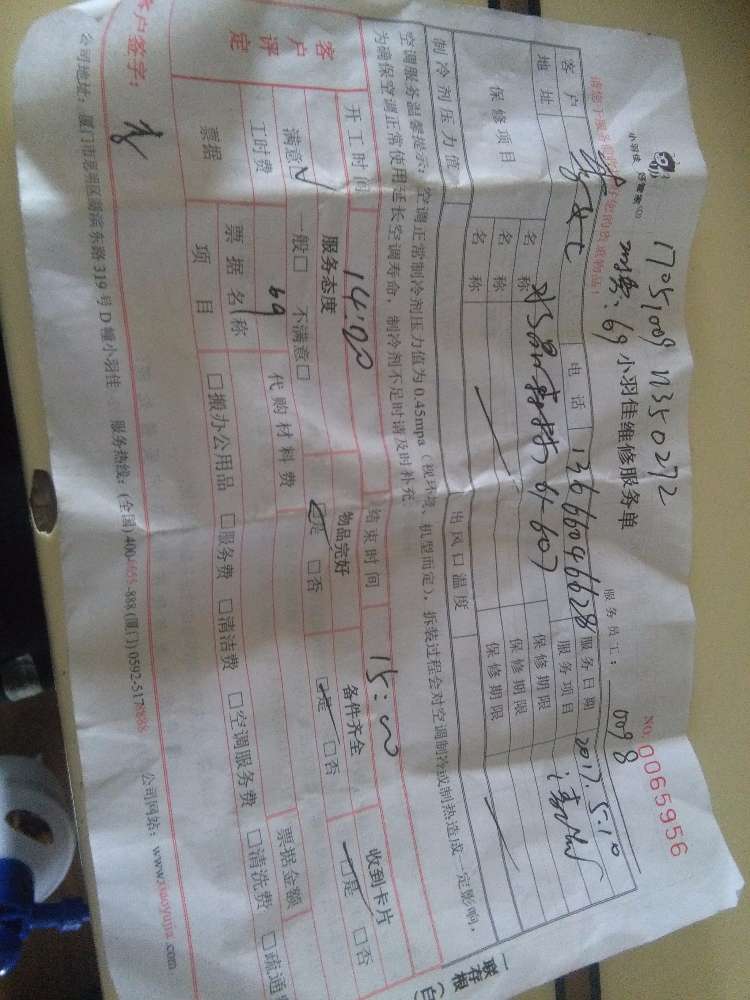 17051009 1350272
网资:69
小羽佳 好管家
小羽佳维修服务单
NO: 0065956
服务员工: 0098
客户 电话 13666046628 服务日期 2017.5.10
地址 01-607 服务项目
保修项目 名称 保修期限
名称 保修期限
名称 保修期限
制冷剂压力值 出风口温度
空调服务温馨提示:空调正常制冷剂压力值为0.45mpa(视环境、机型而定),拆装过程会对空调制冷或制热造成一定影响,
为确保空调正常使用延长空调寿命,制冷剂不足时请及时补充.
开工时间 14:00 结束时间 15:00
客户评定 服务态度 物品完好 备件齐全 收到卡片
满意☑ 一般□ 不满意□ ☑是 □否 ☑是 □否 ☑是 □否
工时费 69 代购材料费 票据金额
票据 票据名称
项目 □搬办公用品 □服务费 □清洁费 □空调服务费 □清洗费 □疏通
客户签字:
公司地址:厦门市思明区湖滨东路319号D幢小羽佳 服务热线:(全国)4004655-888 (厦门)0592-5178888 公司网站:www.xiaoyujia.com
一联存根(白